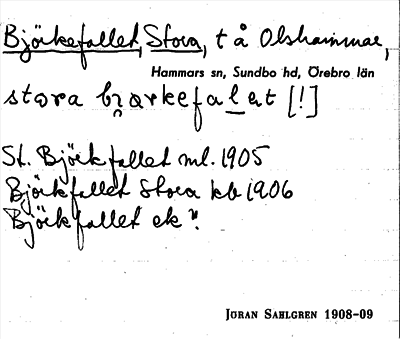 Björkefallet, Stora, t å Olshammar,
Hammars sn, Sundbo hd, Örebro län
stora bjorkefalet [!]
St. Björkfallet ml. 1905
Björkfallet Stora kb 1906
Björkfallet ek
JÖRAN SAHLGREN 1908-09